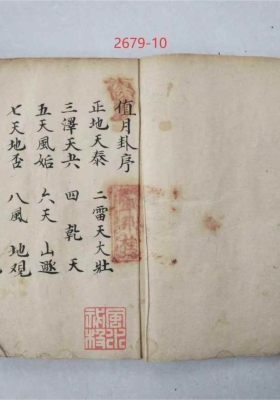 2679-10
值月卦序
正地天泰 二雷天大壯
三澤天夬 四乾天
五天風姤 六天山遯
七天地否 八風地观